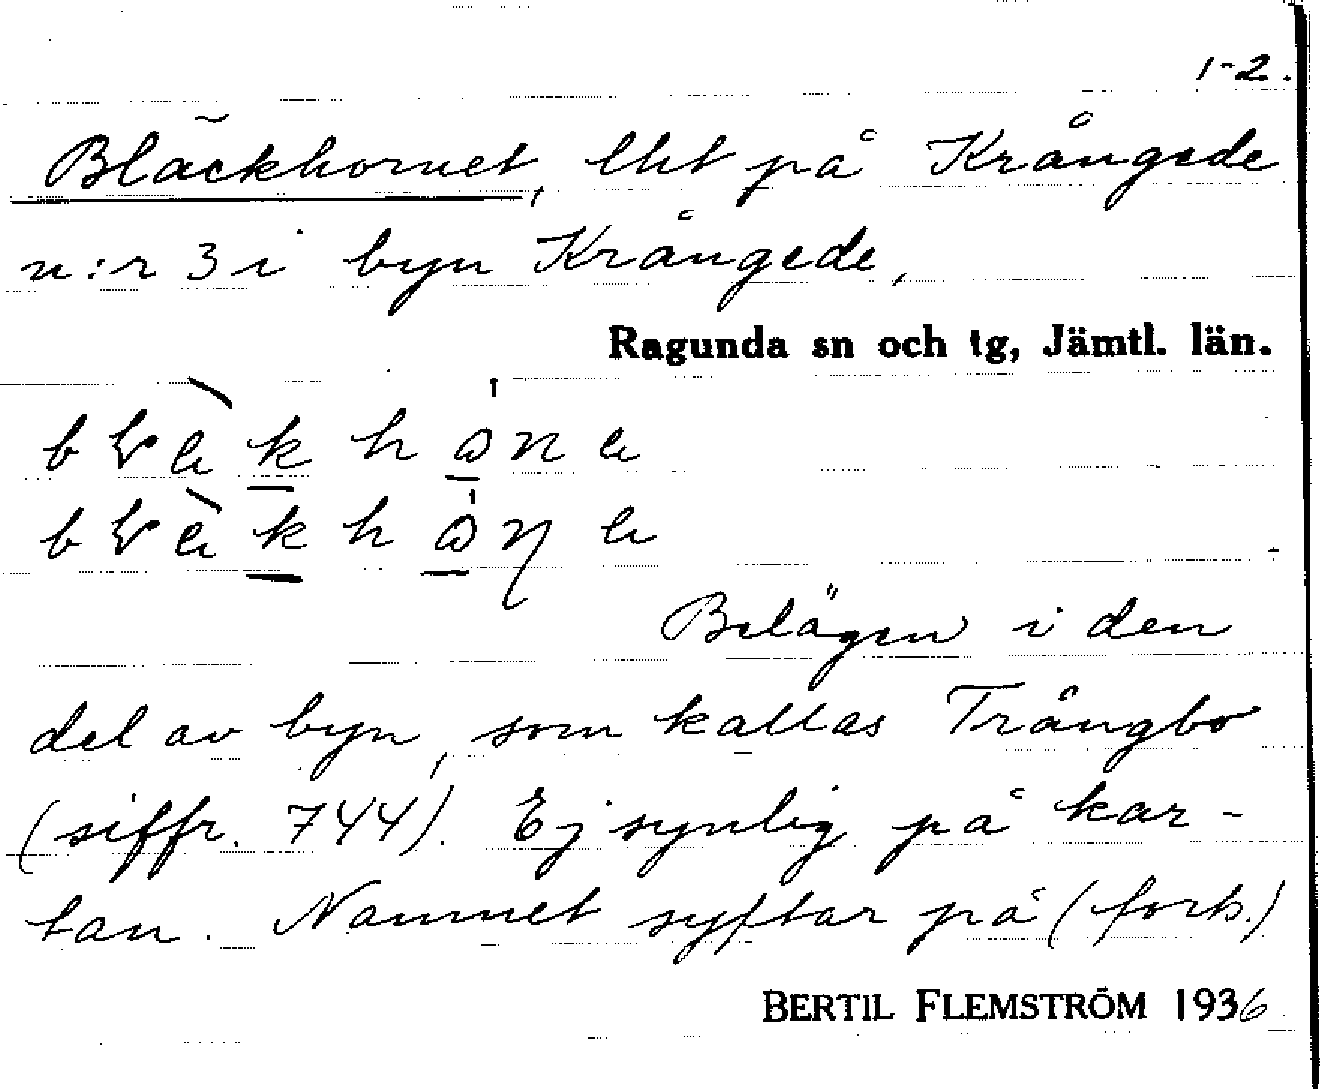 1-2.
Bläckhornet, lht på Krångede
n:r 3 i byn Krångede,
Ragunda sn och tg, Jämtl. län.
Belägen i den
del av byn, som kallas Trångbo
(siffr. 744). Ej synlig på kar-
tan. Namnet syftar på (forts.)
BERTIL FLEMSTRÖM 1936